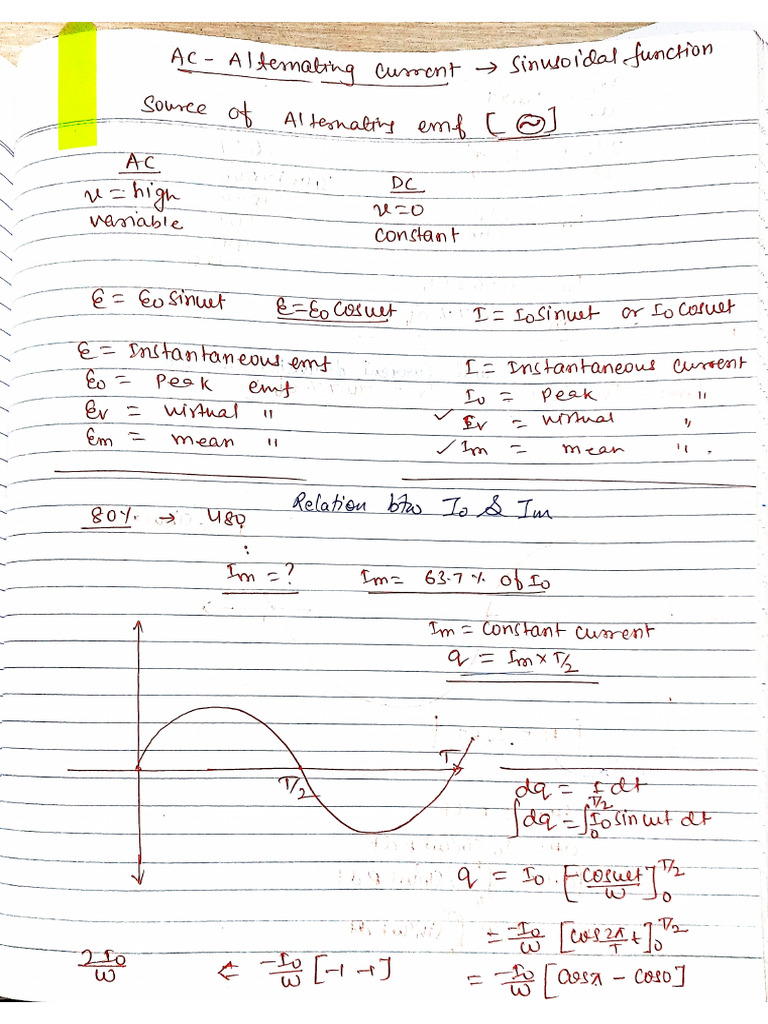 AC - Alternating current → Sinusoidal function
Source of Alternating emf [ ~ ]
AC
ν = high
variable
DC
ν = 0
constant
ε = ε₀ sinωt ε = ε₀ cosωt I = I₀ sinωt or I₀ cosωt
ε = Instantaneous emf
ε₀ = Peak emf
εv = virtual "
εm = mean "
I = Instantaneous current
I₀ = Peak "
✓ Ev = virtual "
✓ Im = mean " .
Relation btw I₀ & Im
80% → 480
:
Im = ? Im = 63.7% of I₀
Im = constant current
q = Im × T/2
T/2
T
dq = I dt
∫dq = ∫₀^T/2 I₀ sinωt dt
q = I₀ . [-cosωt/ω]₀^T/2
= -I₀/ω [cos 2π/T t]₀^T/2
= -I₀/ω [cosπ - cos0]
⇐ -I₀/ω [-1 -1]
2I₀/ω